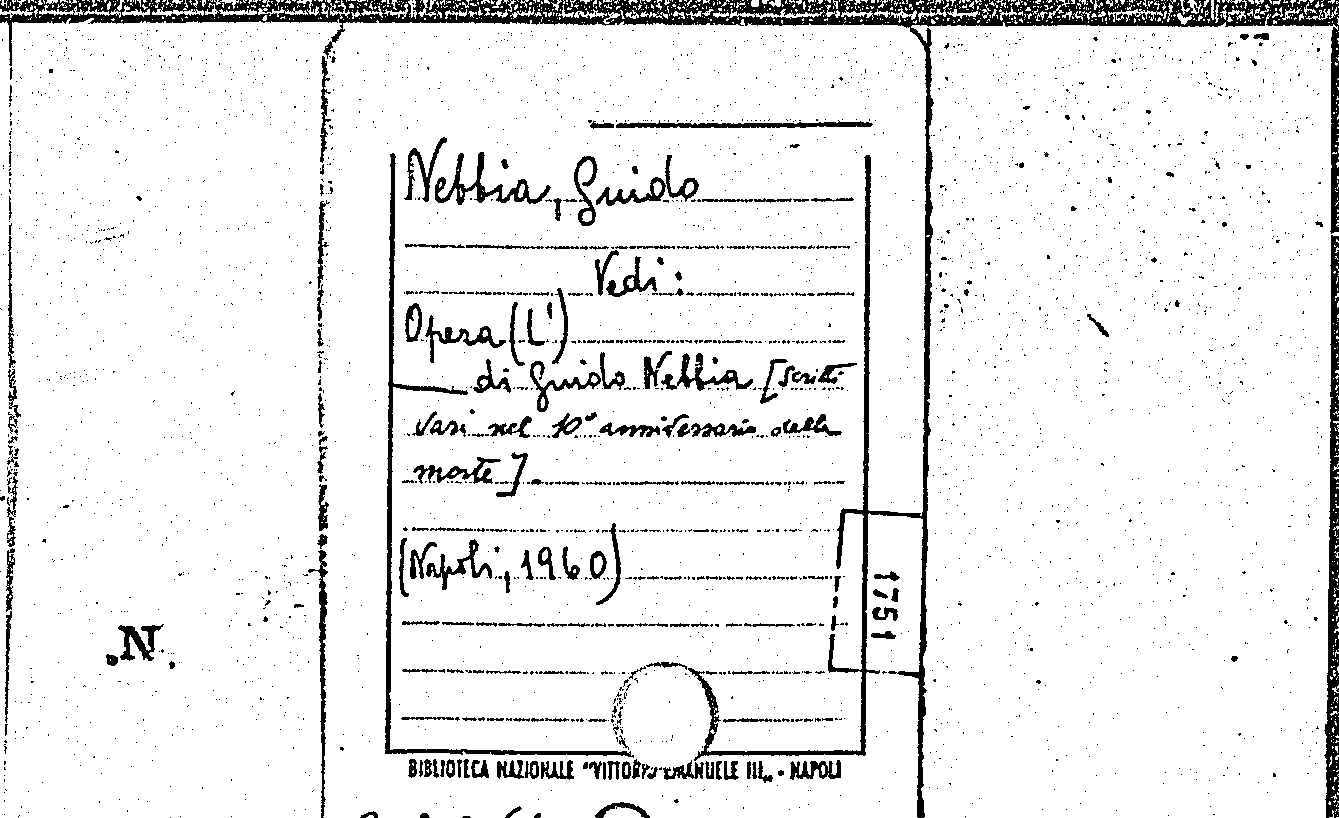 Nebbia, Guido
Vedi:
Opera (L')
di Guido Nebbia [scritti
vari nel 10° anniversario della
morte].
(Napoli, 1960)
1751
.N.
BIBLIOTECA NAZIONALE "VITTORIO EMANUELE III„ - NAPOLI